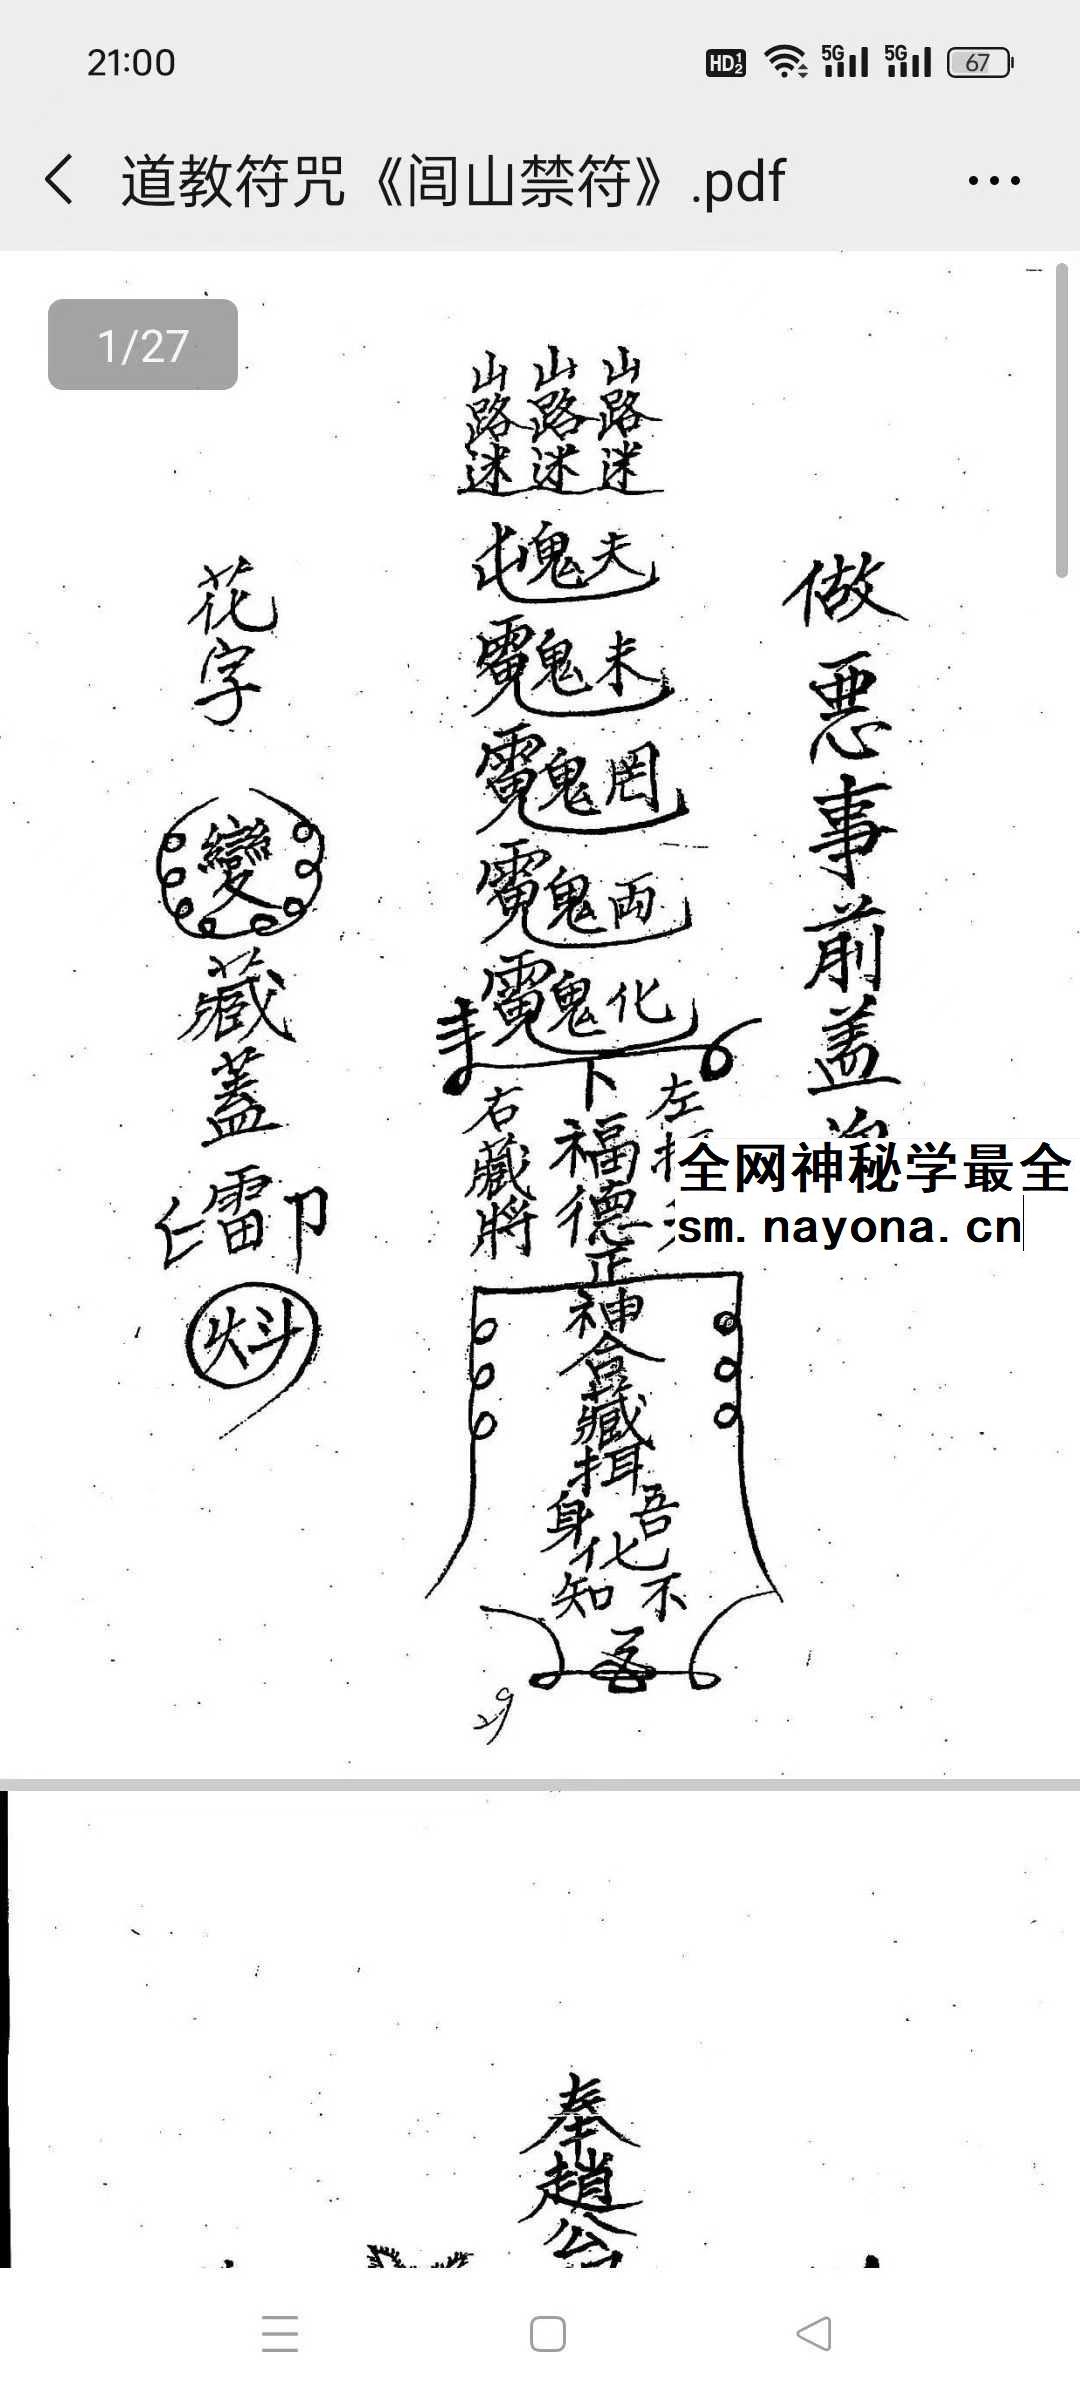 21:00
HD 1 2 5G 5G 67
道教符咒《闾山禁符》.pdf
1/27
山山山
路路路
迷迷迷
鬼夫
鬼未
鬼罔
鬼両
鬼化
下
右藏將
左
福德正神
合藏
身吾
化
知不
做惡事前盖
花字
變
藏蓋
雷卩
29
全网神秘学最全
sm.nayona.cn
奉趙公